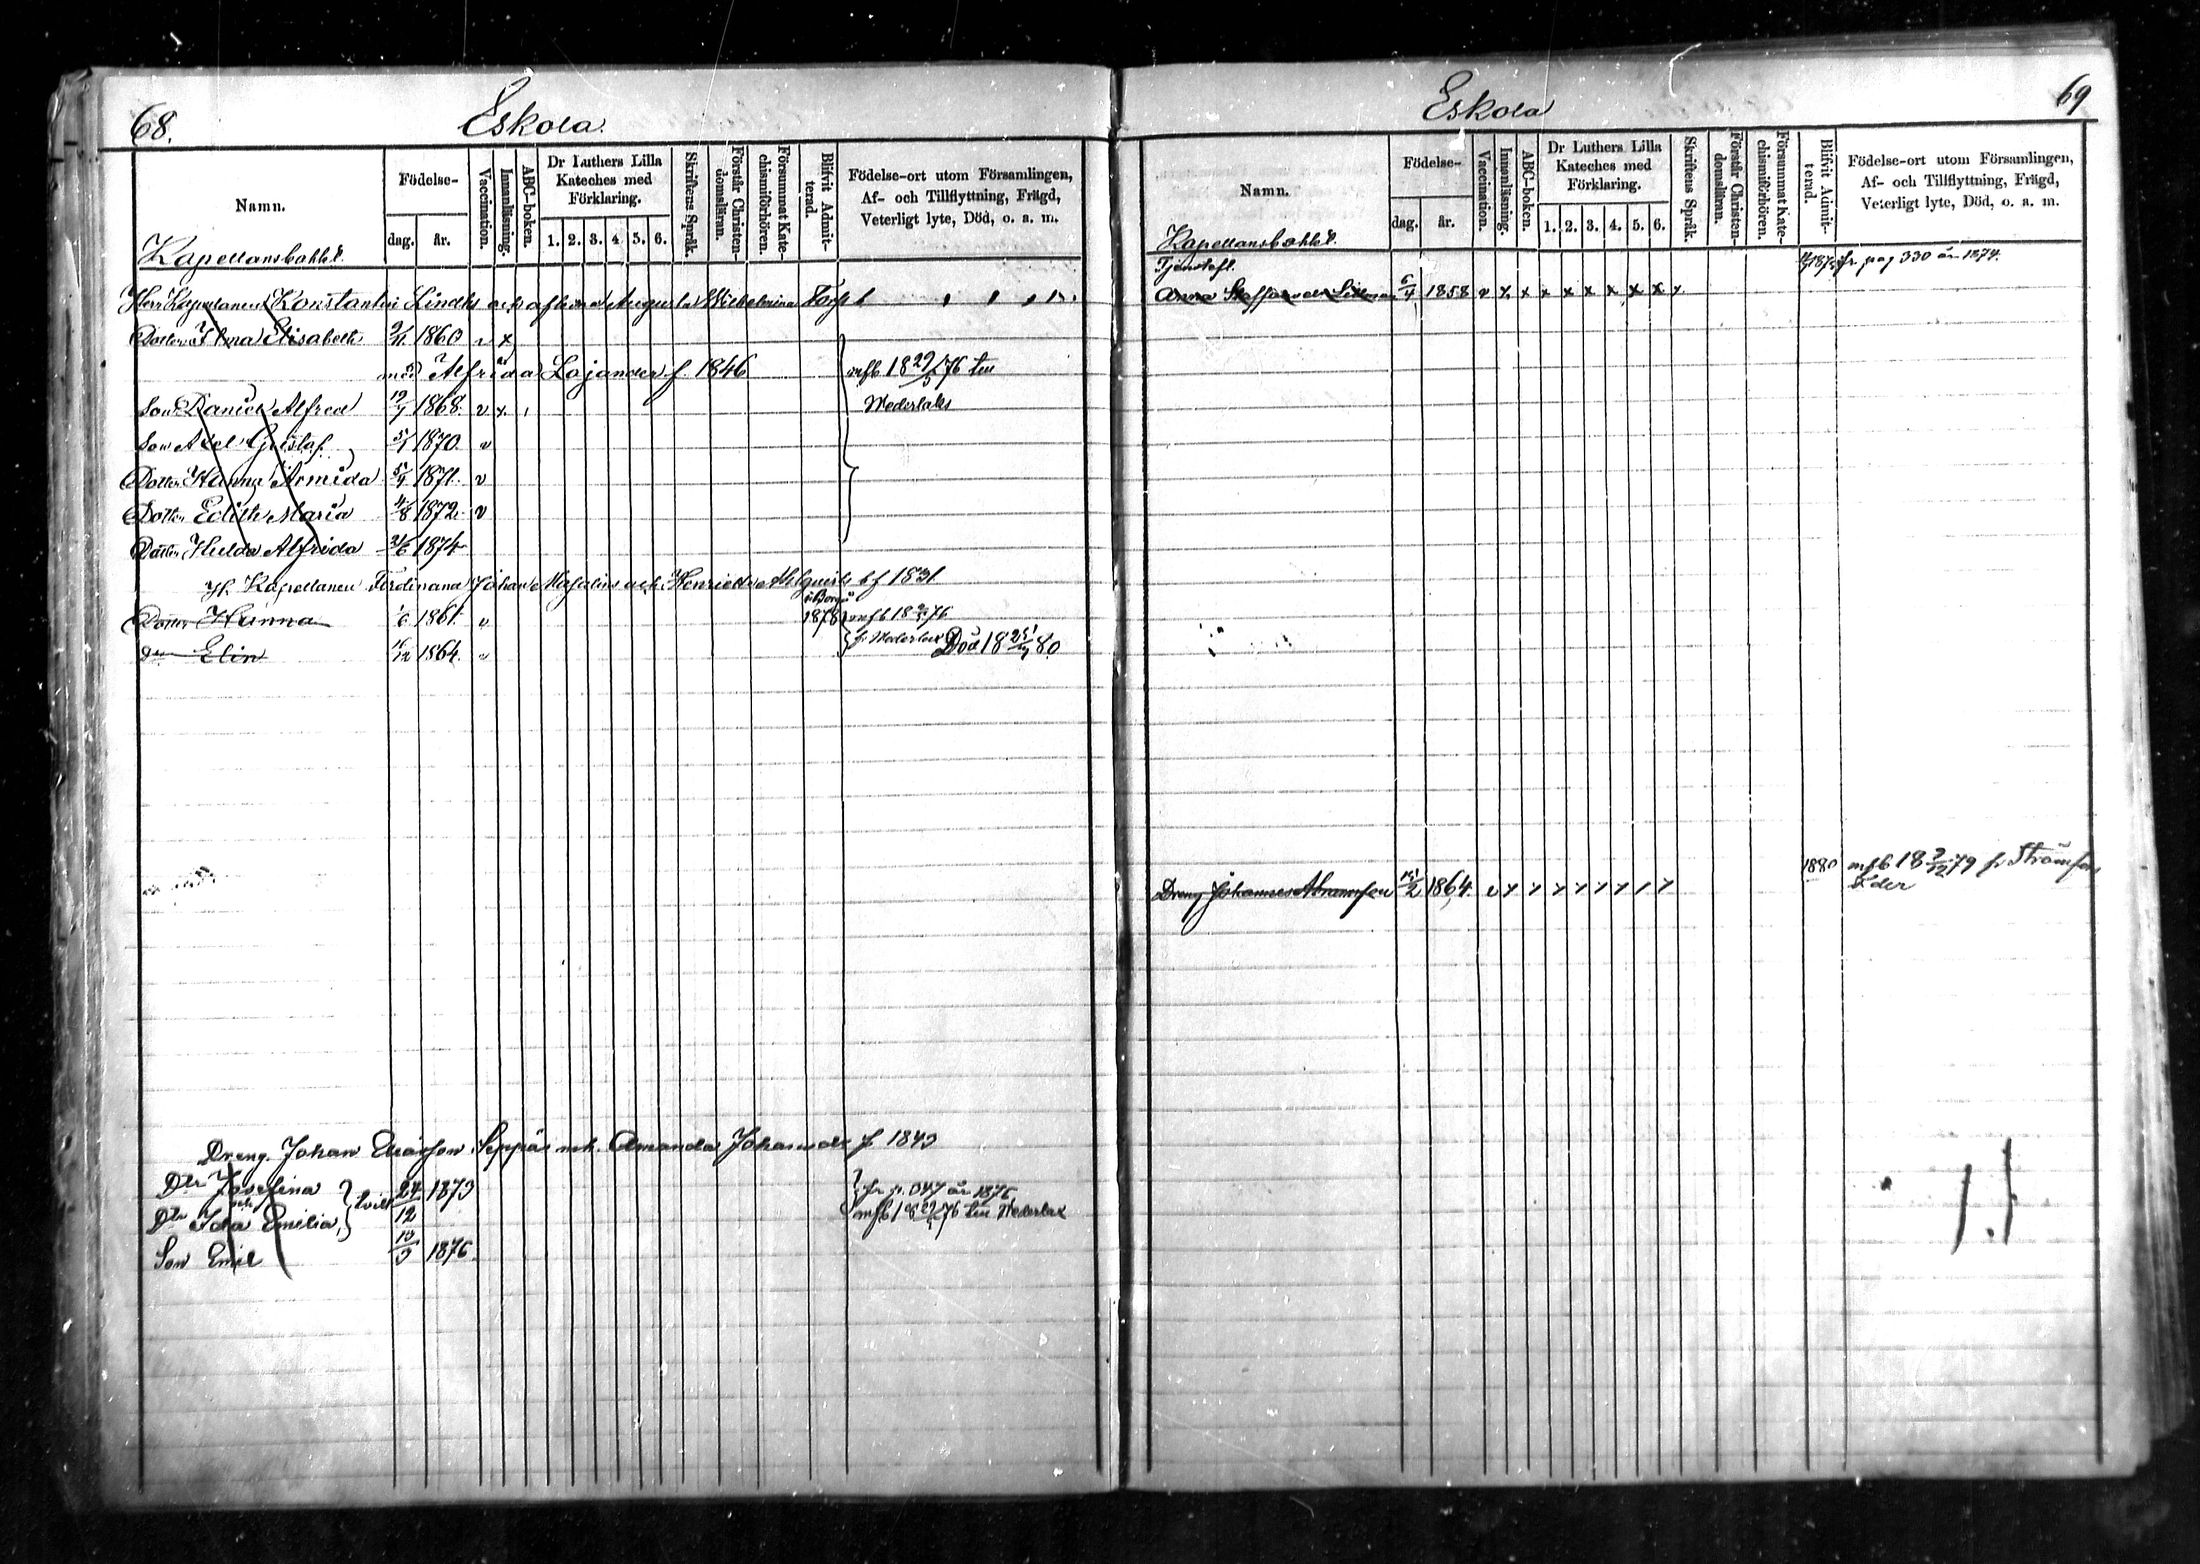 68.
Eskola.
Namn.
Födelse-
dag. år.
Vaccination.
Innanläsning.
ABC-boken.
Dr Luthers Lilla Kateches med Förklaring.
1. 2. 3. 4. 5. 6.
Skriftens Språk.
Förstår Christendomsläran.
Försummat Katechismiförhören.
Blifvit Admitterad.
Födelse-ort utom Församlingen,
Af- och Tillflyttning, Frägd,
Veterligt lyte, Död, o. a. m.
Kapellansbohlet.
Herr Kapellanen Konstantin Lindh och aflidna Augusta Wilhelmina
Dotter Ilma Elisabeth 2/11 1860 v x
med Alfrida Lojander f. 1846 mfb 18 29/5 76 till
Son Daniel Alfred 19/7 1868. v x Wederlaks
Son Axel Gustaf 5/1 1870. v
Dotter Hanna Armida 5/4 1871. v
Dotter Edith Maria 4/8 1872. v
Dotter Hulda Alfrida 21/6 1874
H. Kapellanen Ferdinand Johan och Henriette Ahlquist f 1831
Dotter Hanna 1/6 1861. v 1878 mfb 18 76
Dr Elin 1864. v fr Wederlax Död 18 80.
Dreng Johan Seppäs och Amanda Johansdr f 1843
Dtr Josefina tvill 24/12 1873 fr p. 347 år 1876
och
Dtr Ida Emilia, mfb 18 29/5 76 till Wederlax
Son Emil 13/3 1876.
69
Eskola
Namn.
Födelse-
dag. år.
Vaccination.
Innanläsning.
ABC-boken.
Dr Luthers Lilla Kateches med Förklaring.
1. 2. 3. 4. 5. 6.
Skriftens Språk.
Förstår Christendomsläran.
Försummat Katechismiförhören.
Blifvit Admitterad.
Födelse-ort utom Församlingen,
Af- och Tillflyttning, Frägd,
Veterligt lyte, Död, o. a. m.
Kapellansbohlet.
Tjenstefl. fr pag 330 år 1874.
Anna Staffansdr 6/4 1858 v x x x x x x x x x
1880 mfb 18 3/12 79 fr Strömfors
Dreng Johannes Abramsson 1864. v x x x x x x x x